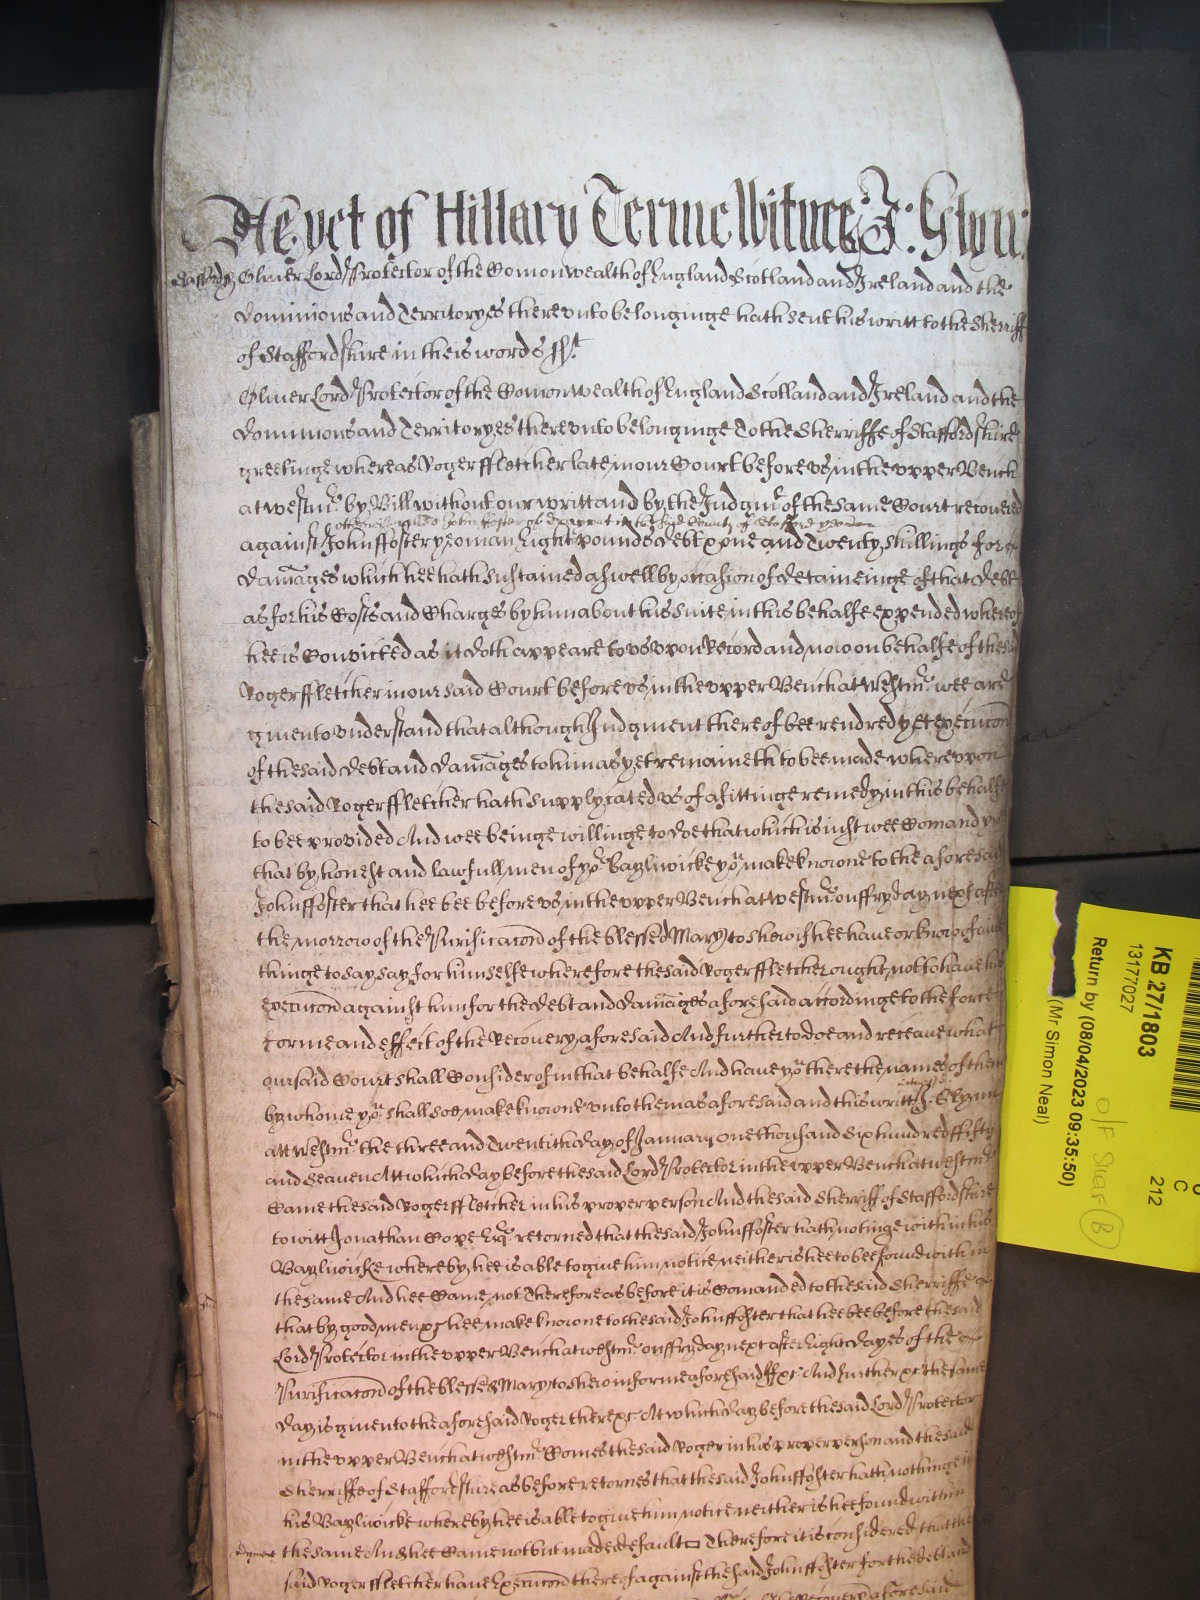 As yet of Hillary Terme Witnes J: Glyn:
Staffordss Oliver Lord Protector of the Comonwealth of England Scotland and Ireland and the
Dominions and Territoryes thereunto belonginge hath sent his writt to the Sherriff
of Staffordshire in theis words sst
Oliver Lord Protector of the Comonwealth of England Scotland and Ireland and the
Dominions and Territoryes thereunto belonginge To the Sherriffe of Staffordshire
greetinge whereas Roger ffletcher late in our Court before us in the upper Bench
at westmr by Bill without our writt and by the Judgmt of the same Court recovered
otherwise called John ffoster of in the County of Stafford yeoman
against John ffoster yeoman Eight pounds debt and one and Twenty shillings for
damages which hee hath sustained aswell by occasion of detaineinge of that debt
as for his Costs and Charges by him about his suite in this behalfe expended whereof
hee is Convicted as it doth appeare to us upon Record and now on behalfe of the said
Roger ffletcher in our said Court before us in the upper Bench at Westmr wee are
given to understand that although Judgment thereof bee rendred yet execucon
of the said debt and damages to him as yet remaineth to bee made whereupon
the said Roger ffletcher hath supplycated us of a fittinge remedy in this behalfe
to bee provided And wee beinge willinge to doe that which is iust wee Comand you
that by honest and lawfull men of yor Baylwicke you make knowne to the aforesaid
John ffoster that hee bee before us in the upper Bench at westmr on ffryday next after
the morrow of the Purificacon of the blessed Mary to shew if hee have or know of any
thinge to say say for himselfe wherefore the said Roger ffletcher ought not to have his
execucon against him for the debt and damages aforesaid accordinge to the force
forme and effect of the Recovery aforesaid And further to doe and receave what
our said Court shall Consider of in that behalfe And have you there the names of them
by whome you shall soe make knowne unto them as aforesaid and this writt witnes J. Glynn
att Westmr the three and Twentith day of January one thousand six hundred ffifty
and Seaven Att which day before the said Lord Protector in the upper Bench at westmr
Came the said Roger ffletcher in his proper person And the said Sherriff of Staffordshire
to witt Jonathan Cope Esqr retorned that the said John ffoster hath nothinge within his
Baylwicke whereby hee is able to give him notice neither is hee to bee found within
the same And hee Came not Therefore as before it is Comanded to the said Sherriffe
that by good men &c hee make knowne to the said John ffoster that hee bee before the said
Lord Protector in the upper Bench at westmr on ffryday next after Eight dayes of the
Purificacon of the blessed Mary to shew in forme aforesaid if &c And further &c the same
day is given to the aforesaid Roger there &c At which day before the said Lord Protector
in the upper Bench at westmr Comes the said Roger in his proper person and the said
Sherriffe of Staffordshire as before retornes that the said John ffoster hath nothinge in
his Baylwicke whereby hee is able to give him notice neither is hee found within
Judgment the same And hee Came not but made default Therefore it is considered that the
said Roger ffletcher have Execucon thereof against the said John ffoster for the debt and
Recovery aforesaid
KB 27/1803
13177027
Return by (08/04/2023 09:35:50)
(Mr Simon Neal)
C
212
O/F Shelf B